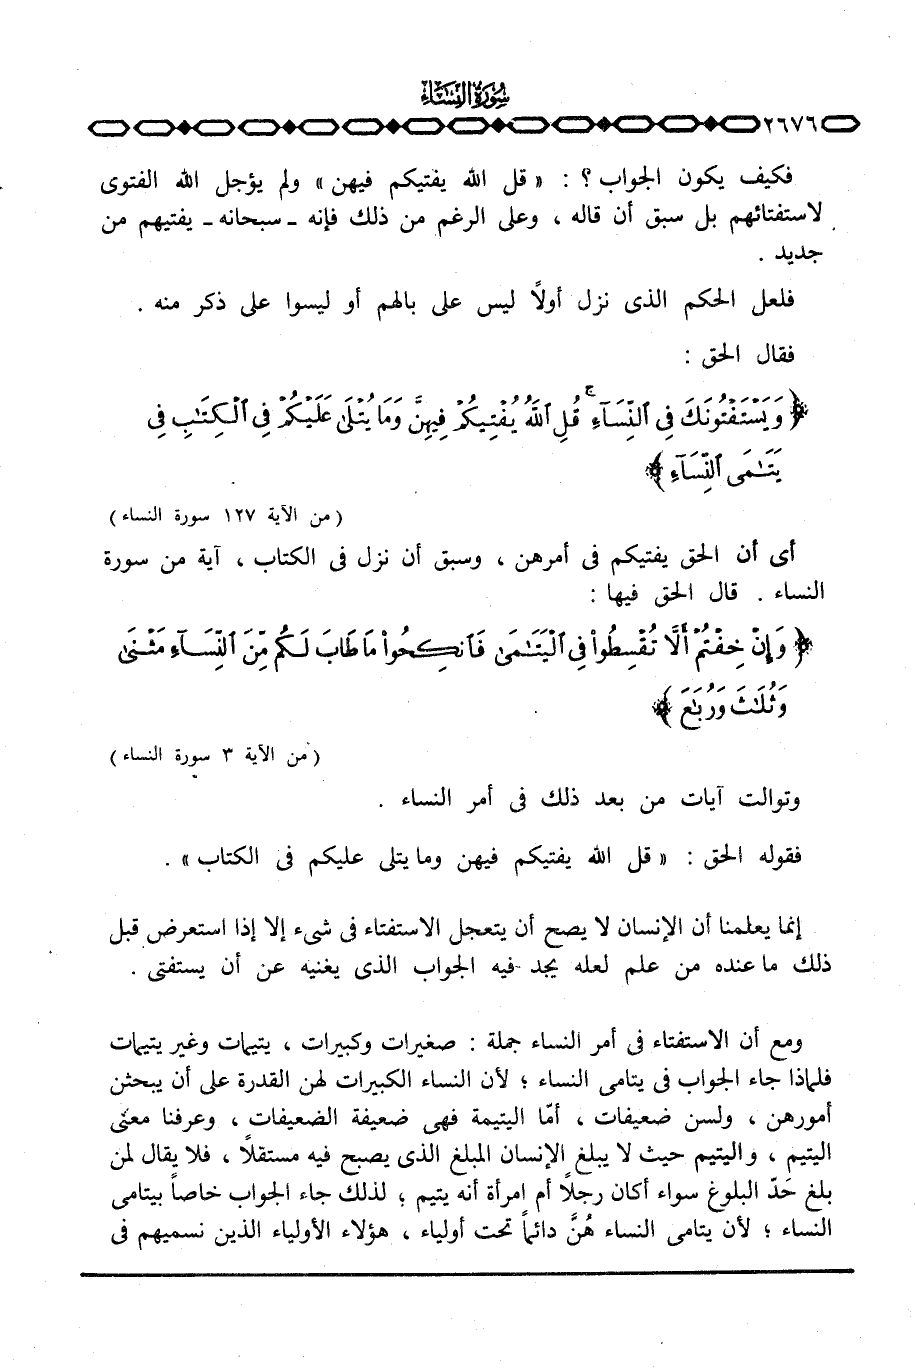 سورة النساء
٢٦٧٦
فكيف يكون الجواب ؟ : « قل الله يفتيكم فيهن » ولم يؤجل الله الفتوى
لاستفتائهم بل سبق أن قاله ، وعلى الرغم من ذلك فإنه ـ سبحانه ـ يفتيهم من
جديد .
فلعل الحكم الذى نزل أولاً ليس على بالهم أو ليسوا على ذكر منه .
فقال الحق :
﴿ وَيَسْتَفْتُونَكَ فِى ٱلنِّسَآءِ ۚ قُلِ ٱللَّهُ يُفْتِيكُمْ فِيهِنَّ وَمَا يُتْلَىٰ عَلَيْكُمْ فِى ٱلْكِتَٰبِ فِى
يَتَٰمَى ٱلنِّسَآءِ ﴾
( من الآية ١٢٧ سورة النساء )
أى أن الحق يفتيكم فى أمرهن ، وسبق أن نزل فى الكتاب ، آية من سورة
النساء . قال الحق فيها :
﴿ وَإِنْ خِفْتُمْ أَلَّا تُقْسِطُوا۟ فِى ٱلْيَتَٰمَىٰ فَٱنكِحُوا۟ مَا طَابَ لَكُم مِّنَ ٱلنِّسَآءِ مَثْنَىٰ
وَثُلَٰثَ وَرُبَٰعَ ﴾
( من الآية ٣ سورة النساء )
وتوالت آيات من بعد ذلك فى أمر النساء .
فقوله الحق : « قل الله يفتيكم فيهن وما يتلى عليكم فى الكتاب » .
إنما يعلمنا أن الإنسان لا يصح أن يتعجل الاستفتاء فى شىء إلا إذا استعرض قبل
ذلك ما عنده من علم لعله يجد فيه الجواب الذى يغنيه عن أن يستفتى .
ومع أن الاستفتاء فى أمر النساء جملة : صغيرات وكبيرات ، يتيمات وغير يتيمات
فلماذا جاء الجواب فى يتامى النساء ؛ لأن النساء الكبيرات لهن القدرة على أن يبحثن
أمورهن ، ولسن ضعيفات ، أمّا اليتيمة فهى ضعيفة الضعيفات ، وعرفنا معنى
اليتيم ، واليتيم حيث لا يبلغ الإنسان المبلغ الذى يصبح فيه مستقلاً ، فلا يقال لمن
بلغ حَدّ البلوغ سواء أكان رجلاً أم امرأة أنه يتيم ؛ لذلك جاء الجواب خاصاً بيتامى
النساء ؛ لأن يتامى النساء هُنَّ دائماً تحت أولياء ، هؤلاء الأولياء الذين نسميهم فى